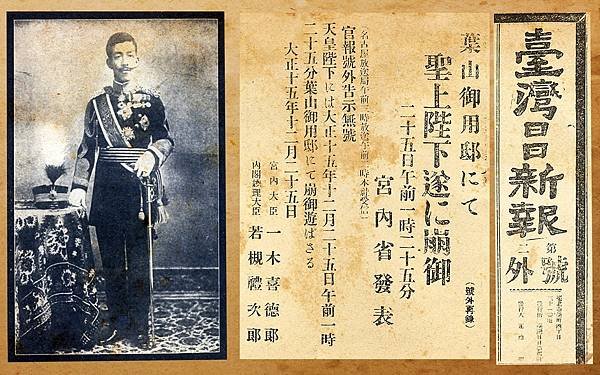 臺灣日日新報
第二號外
葉山御用邸にて
聖上陛下遂に崩御
(號外再錄)
二十五日午前一時二十五分
宮內省發表
官報號外告示無號
天皇陛下には大正十五年十二月二十五日午前一時
二十五分葉山御用邸にて崩御遊ばさる
大正十五年十二月二十五日
宮內大臣 一木喜德郎
內閣總理大臣 若槻禮次郎